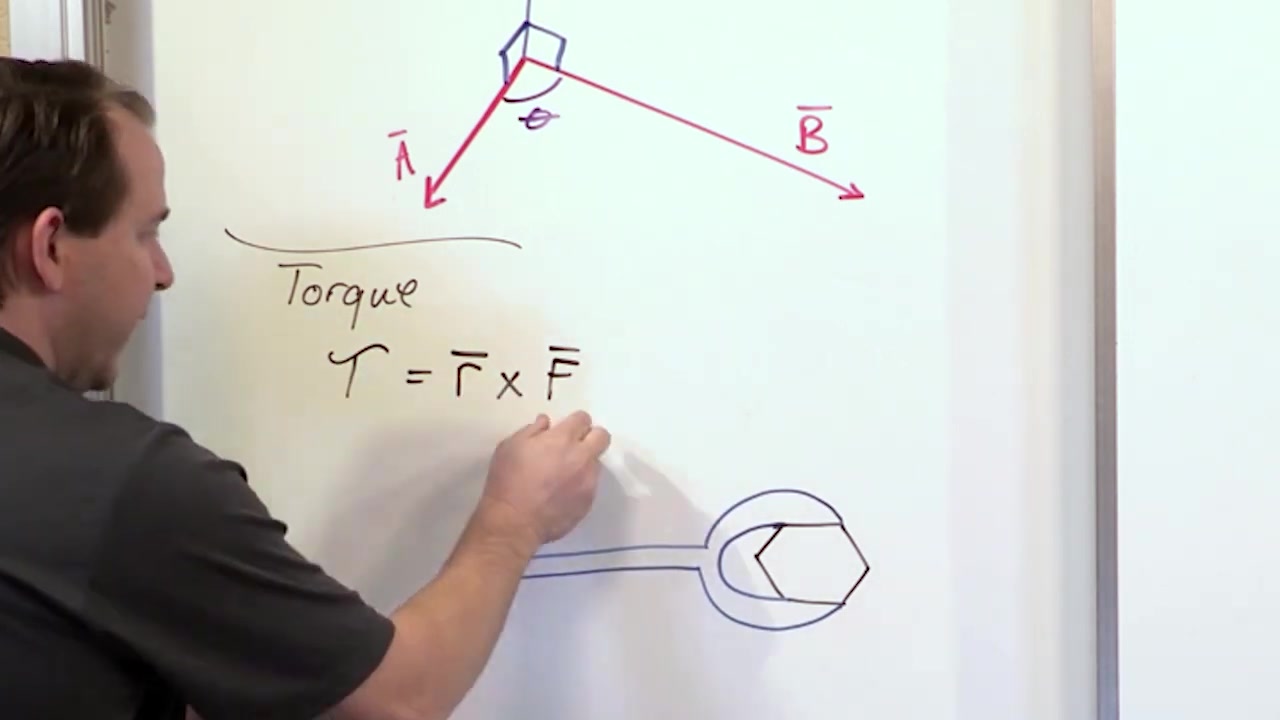 θ
A̅
B̅
Torque
τ = r̅ x F̅